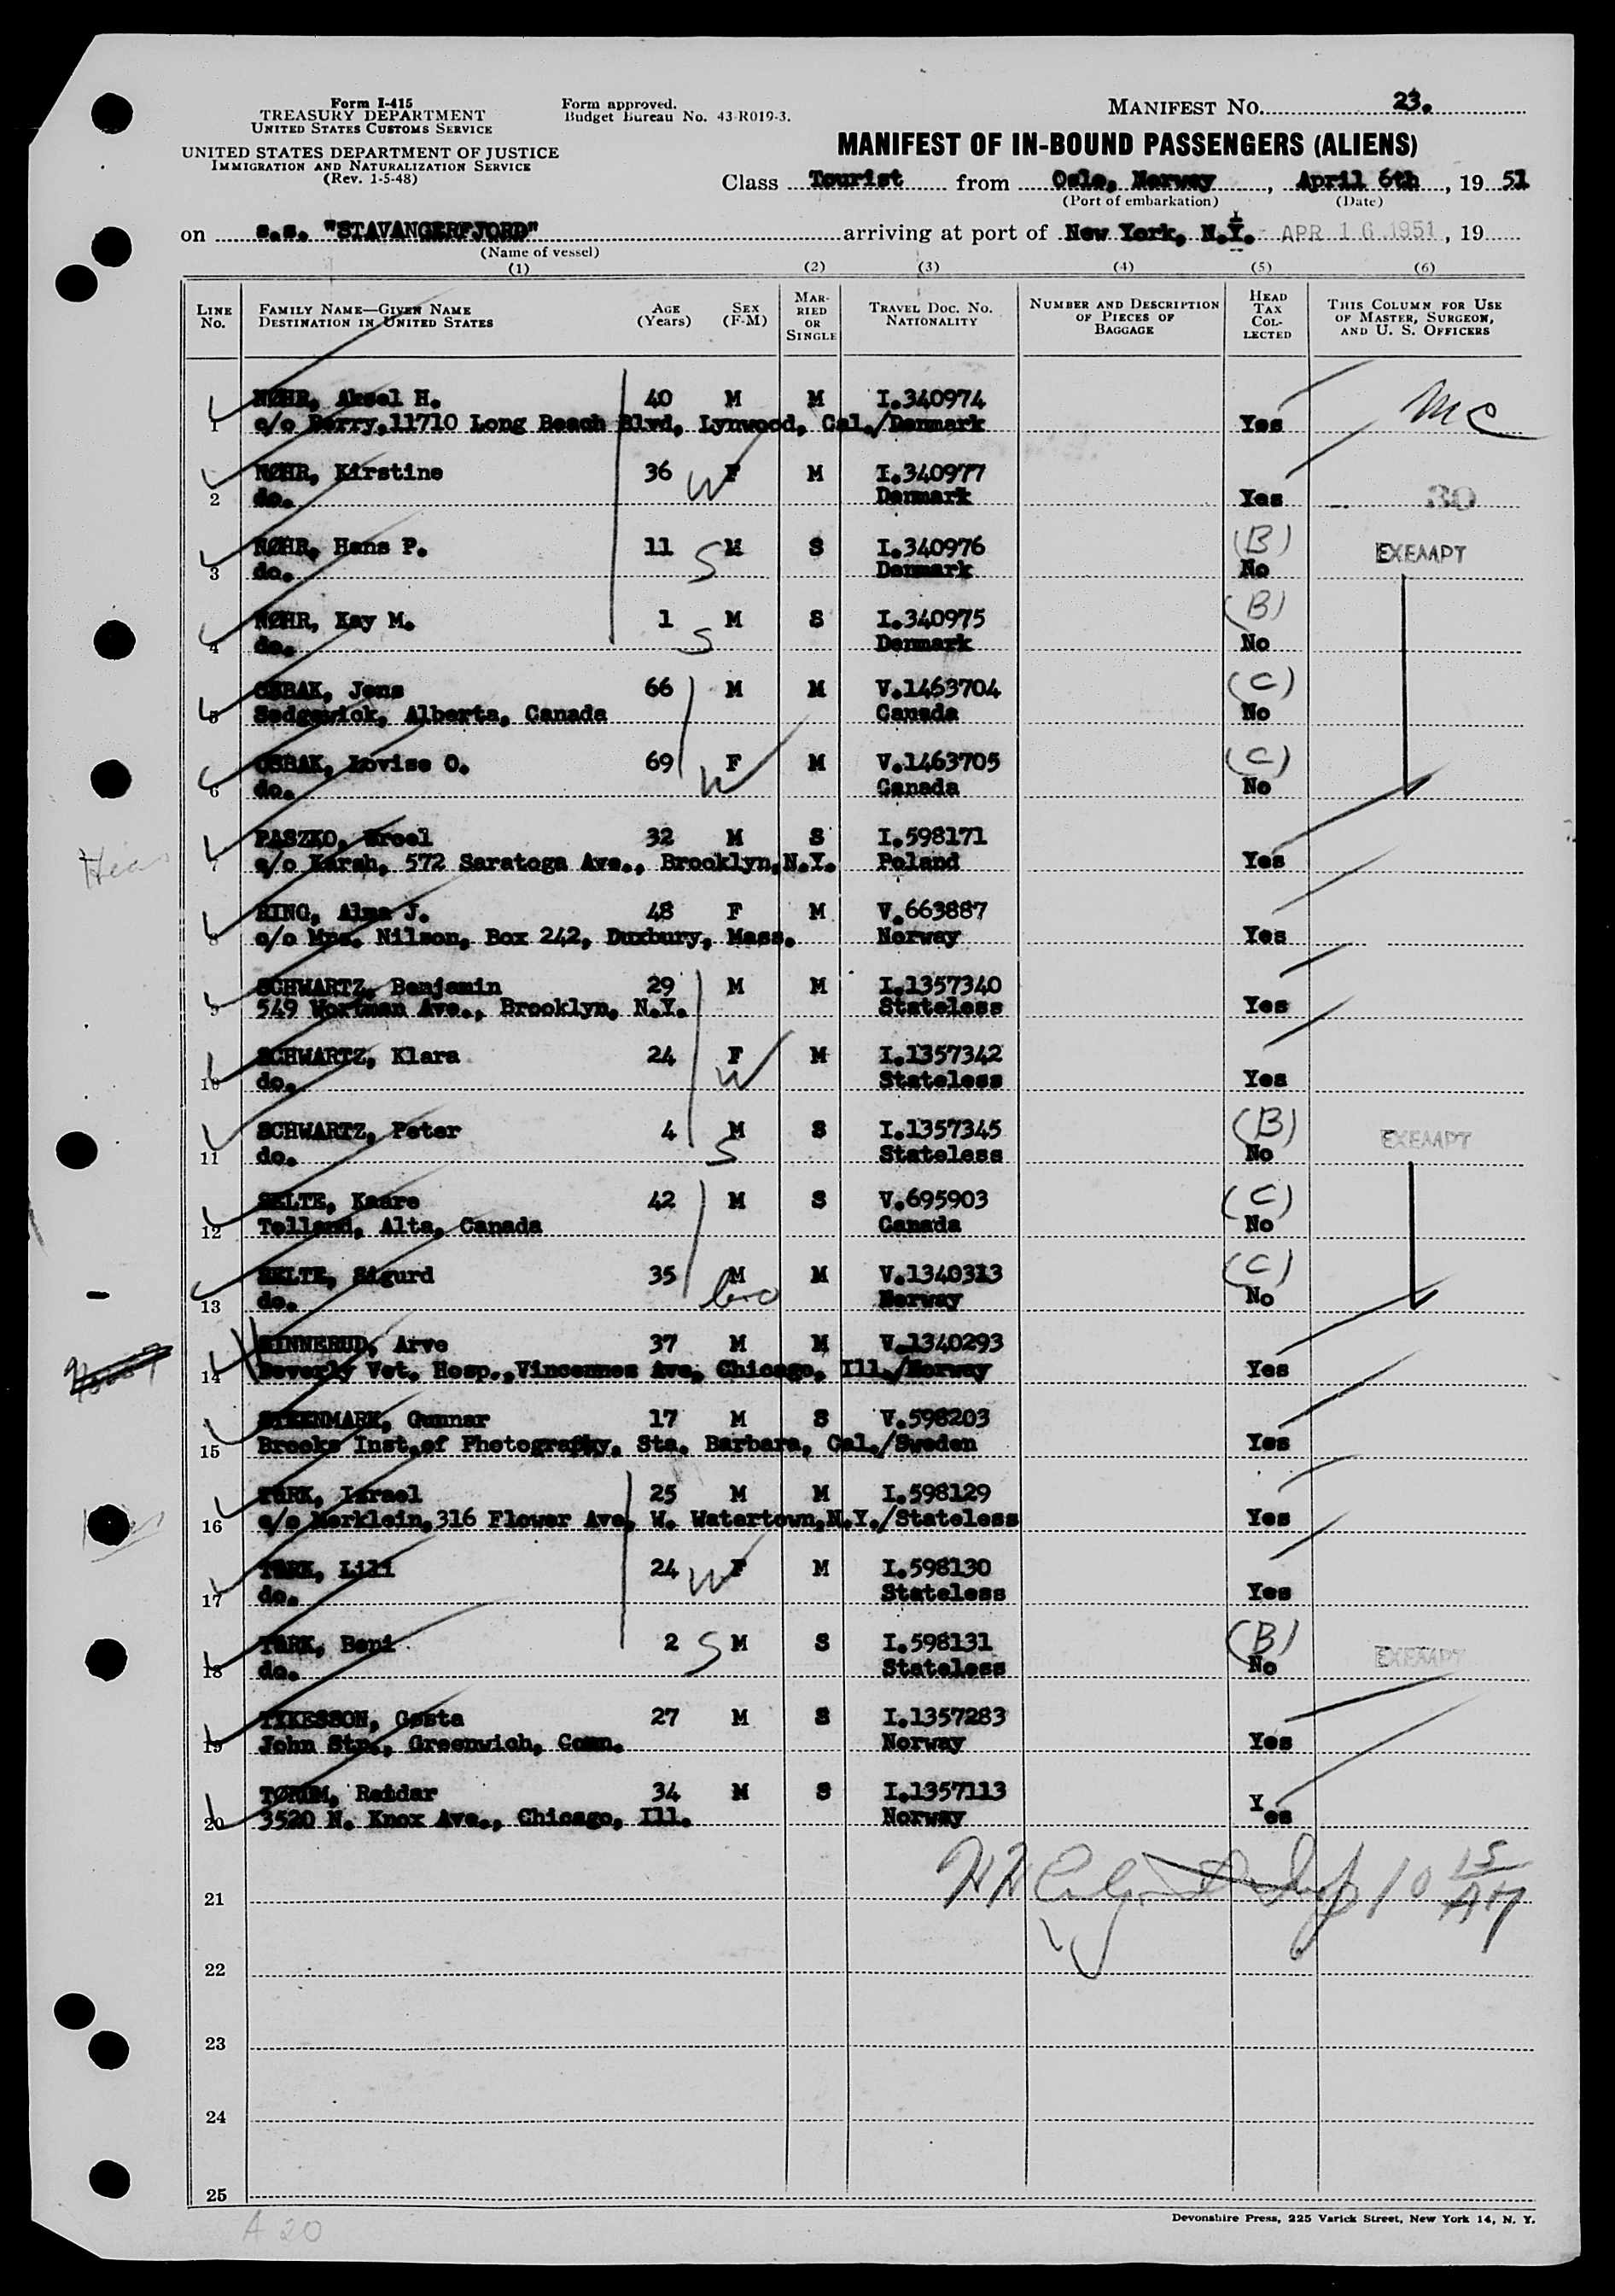 Form I-415
TREASURY DEPARTMENT
UNITED STATES CUSTOMS SERVICE
UNITED STATES DEPARTMENT OF JUSTICE
IMMIGRATION AND NATURALIZATION SERVICE
(Rev. 1-5-48)
Form approved.
Budget Bureau No. 43-R019-3.
MANIFEST NO. 23.
MANIFEST OF IN-BOUND PASSENGERS (ALIENS)
Class Tourist from Oslo, Norway, April 6th, 19 51
(Port of embarkation) (Date)
on s.s. "STAVANGERFJORD" arriving at port of New York, N.Y. APR 16 1951, 19
(Name of vessel)
(1) (2) (3) (4) (5) (6)
LINE No. FAMILY NAME—GIVEN NAME DESTINATION IN UNITED STATES AGE (Years) SEX (F-M) MARRIED OR SINGLE TRAVEL DOC. NO. NATIONALITY NUMBER AND DESCRIPTION OF PIECES OF BAGGAGE HEAD TAX COLLECTED THIS COLUMN FOR USE OF MASTER, SURGEON, AND U. S. OFFICERS
NØHR, Aksel H. 40 M M I.340974 MC
1 c/o Berry,11710 Long Beach Blvd, Lynwood, Cal./Denmark Yes
NØHR, Kirstine 36 W F M I.340977
2 do. Denmark Yes 30
NØHR, Hans P. 11 S M S I.340976 (B) EXEMPT
3 do. Denmark No
NØHR, Kay M. 1 S M S I.340975 (B)
4 do. Denmark No
OSBAK, Jens 66 M M V.1463704 (C)
5 Sedgewick, Alberta, Canada Canada No
OSBAK, Lovise O. 69 W F M V.1463705 (C)
6 do. Canada No
PASZKO, Sroel 32 M S I.598171
7 c/o Karsh, 572 Saratoga Ave., Brooklyn,N.Y. Poland Yes
RING, Alma J. 48 F M V.663887
8 c/o Mrs. Nilson, Box 242, Duxbury, Mass. Norway Yes
SCHWARTZ, Benjamin 29 M M I.1357340
9 549 Wortman Ave., Brooklyn, N.Y. Stateless Yes
SCHWARTZ, Klara 24 F W M I.1357342
10 do. Stateless Yes
SCHWARTZ, Peter 4 M S S I.1357345 (B) EXEMPT
11 do. Stateless No
SELTE, Kaare 42 M S V.695903 (C)
12 Tolland, Alta, Canada Canada No
SELTE, Sigurd 35 M bro M V.1340313 (C)
13 do. Norway No
SINNERUD, Arve 37 M M V.1340293
14 Beverly Vet. Hosp.,Vincennes Ave, Chicago, Ill./Norway Yes
STEENMARK, Gunnar 17 M S V.598203
15 Brooks Inst.of Photography, Sta. Barbara, Cal./Sweden Yes
TURK, Izrael 25 M M I.598129
16 c/o Merklein,316 Flower Ave, W. Watertown,N.Y./Stateless Yes
TURK, Lili 24 W F M I.598130
17 do. Stateless Yes
TURK, Beni 2 S M S I.598131 (B) EXEMPT
18 do. Stateless No
TYKESSON, Gøsta 27 M S I.1357283
19 John Str., Greenwich, Conn. Norway Yes
TØRUM, Reidar 34 M S I.1357113
20 3520 N. Knox Ave., Chicago, Ill. Norway Yes
21 10 15 AM
22
23
24
25
A 20
Devonshire Press, 225 Varick Street, New York 14, N. Y.